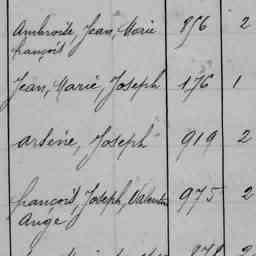 Ambroise, Jean, Marie 856 2
françois
Jean, Marie, Joseph 176 1
arsène, Joseph 919 2
françois, Joseph, Valentin 975 2
Ange